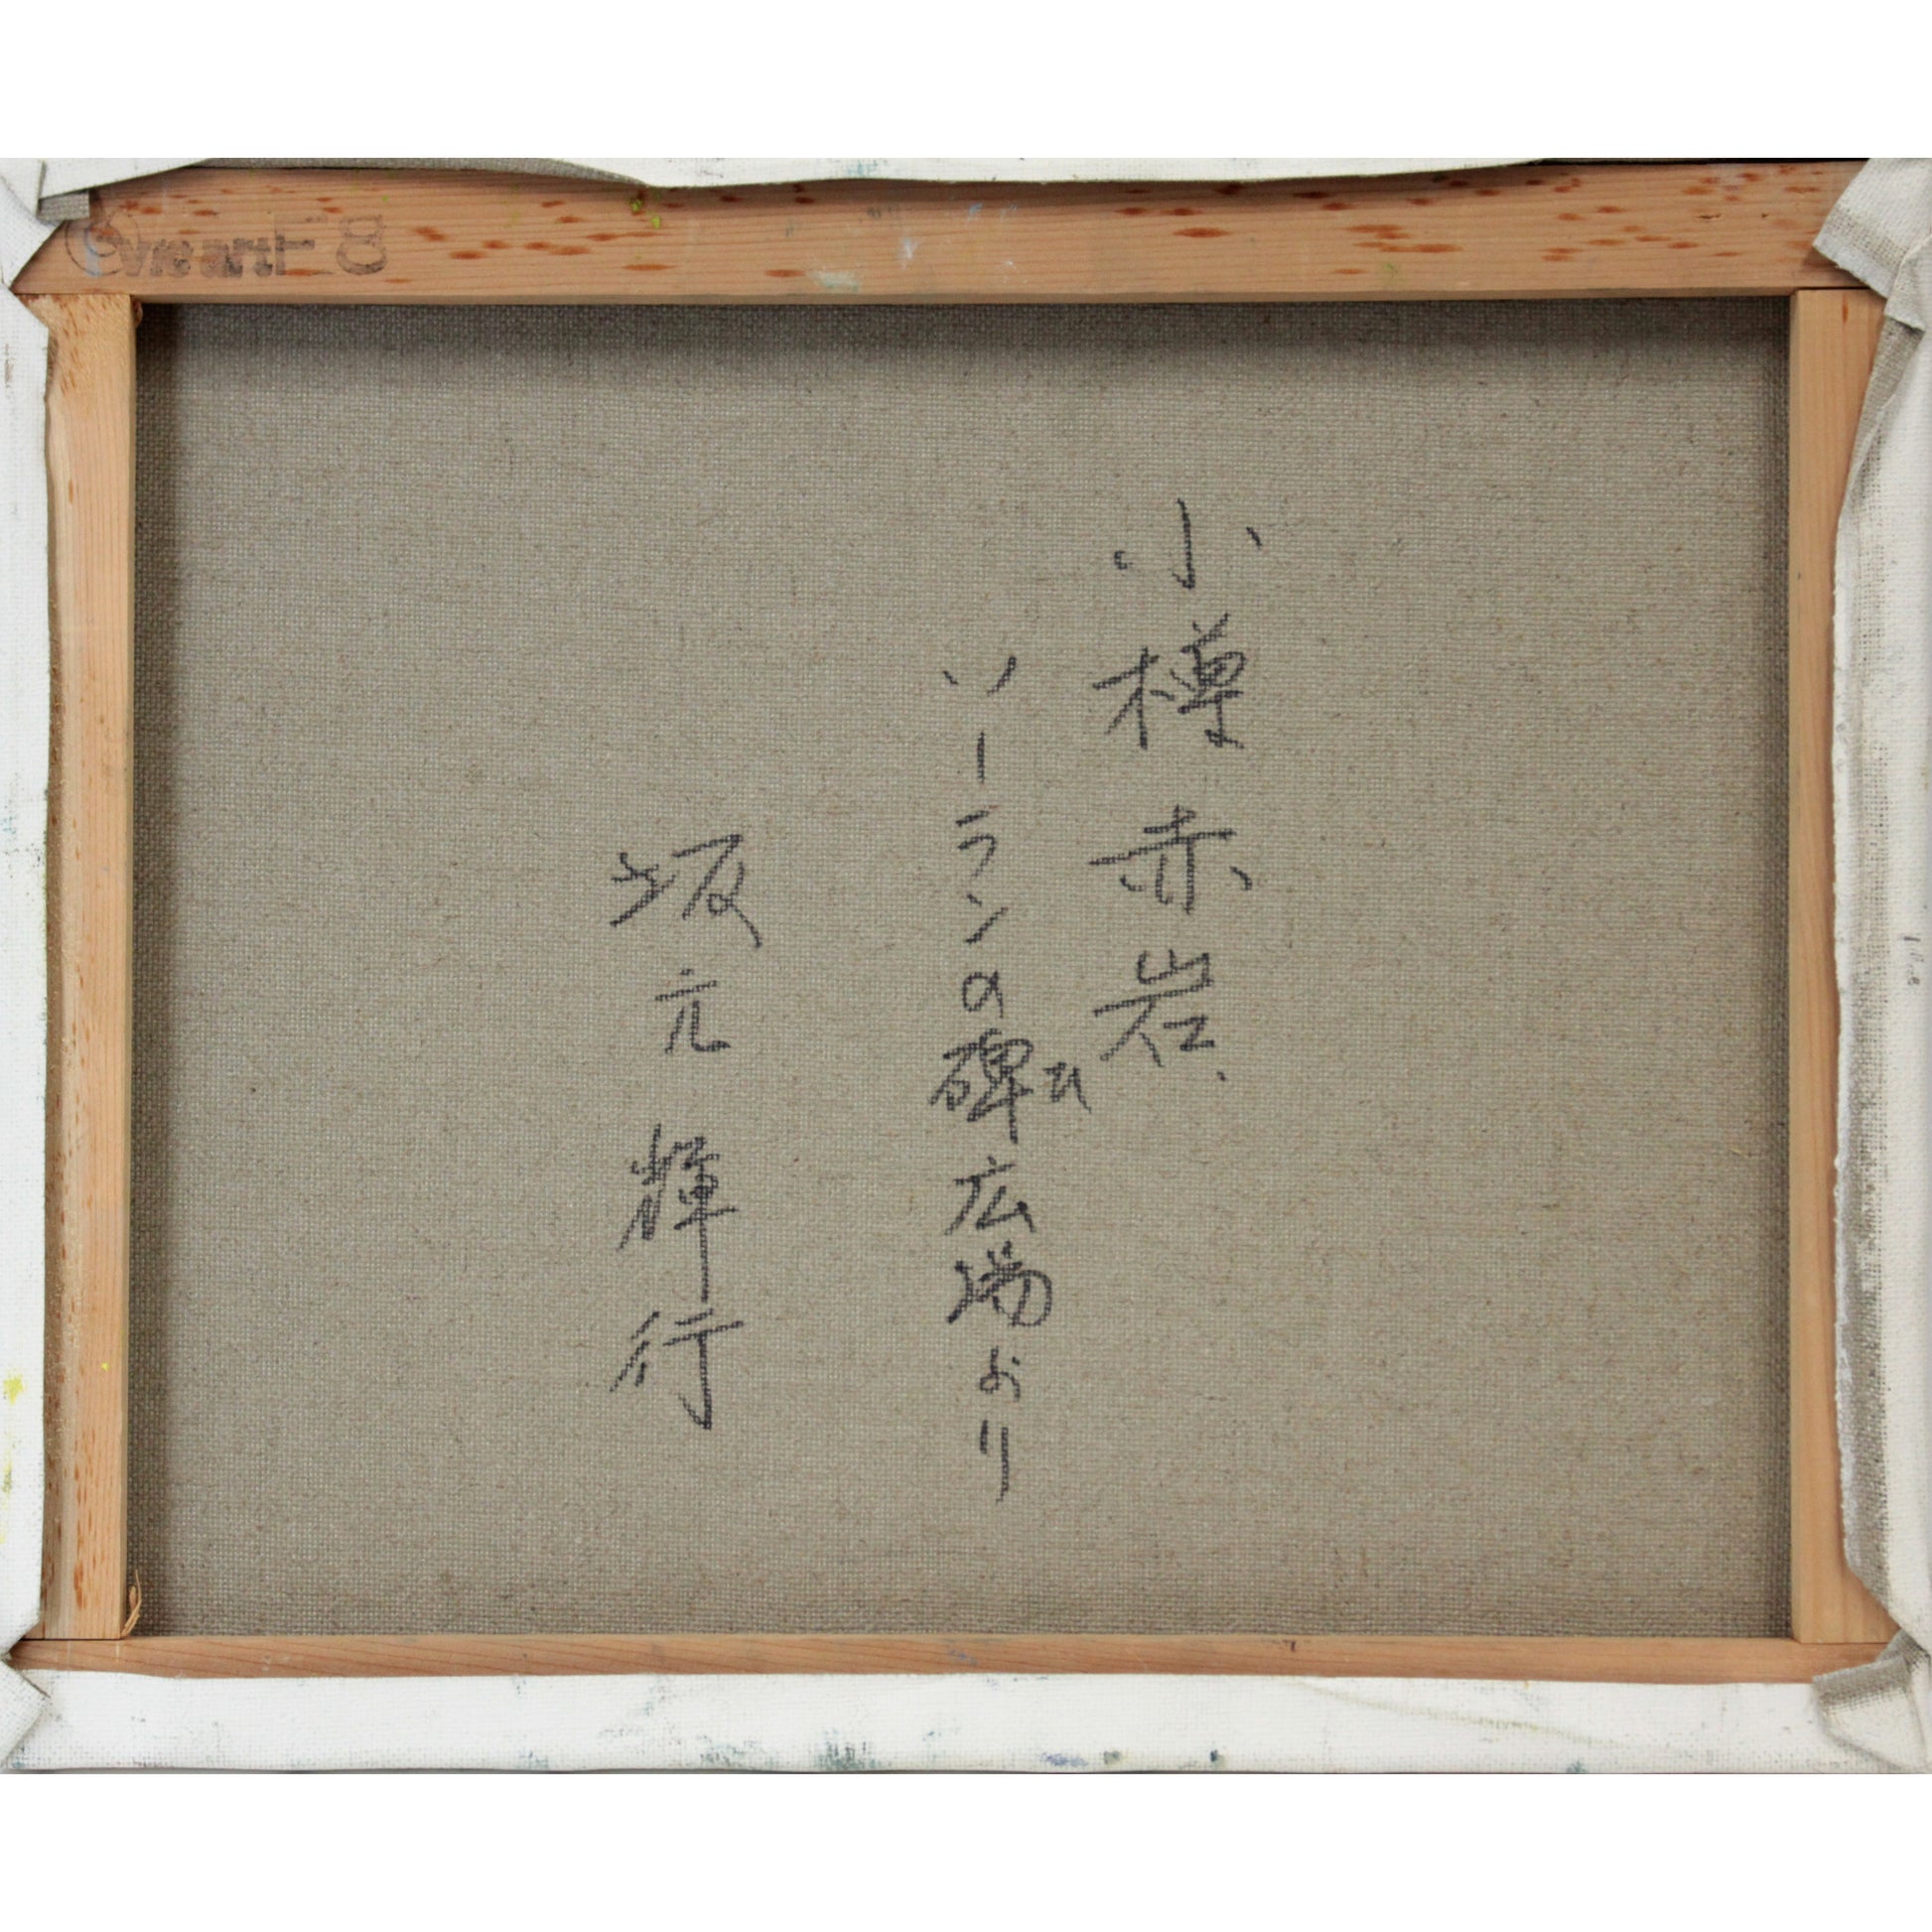 小樽赤岩.
ソーランの碑広場より
ひ
坂元輝行
F8